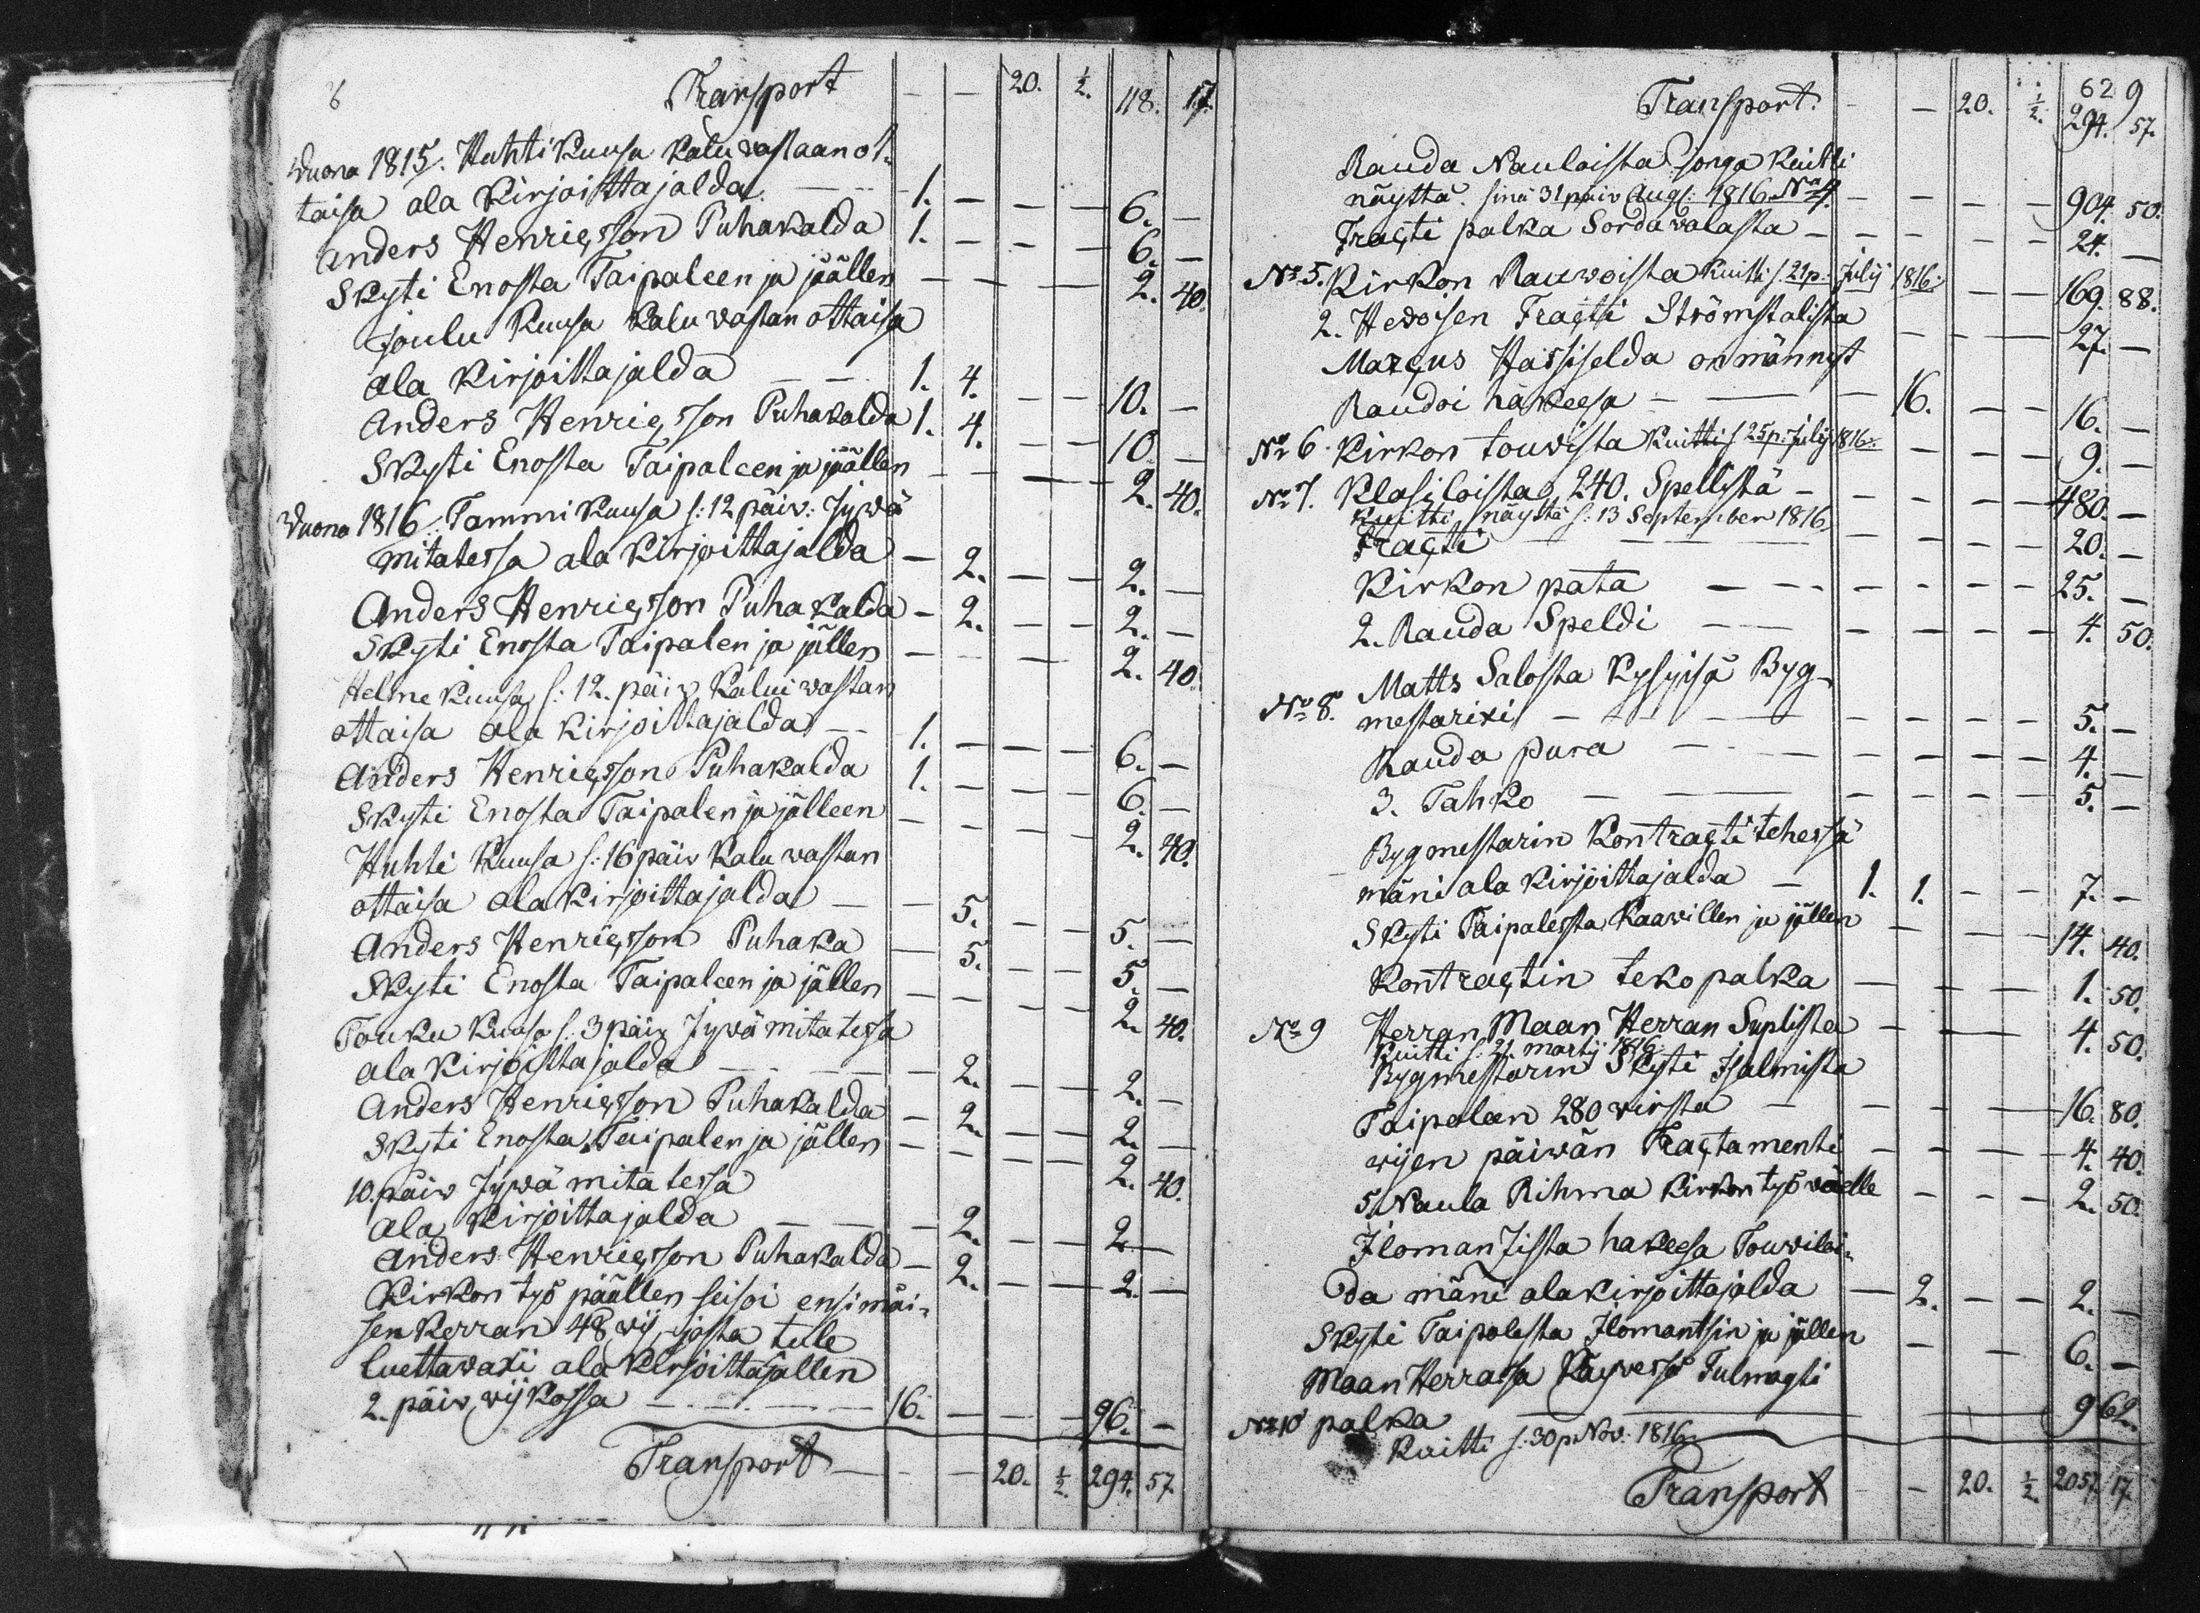 8 Transport — — 20. ½. 118. 17.
Vuona 1815. Huhti Kuusa Kalu vastaan ot-
taisa ala Kirjoittajalda — — 1. — — — 6. —
Anders Henricsson Puhakalda 1. — — — 6. —
Skyti Enosta Taipaleen ja jäällen — — — — 2. 40.
Joulu Kuusa Kalu vastan ottaisa
ala Kirjoittajalda — — 1. 4. — — 10. —
Anders Henricsson Puhakalda 1. 4. — — 10. —
Skyti Enosta Taipaleen ja jäällen — — — — 2. 40.
Vuona 1816. Tammi Kuusa s: 12 päiv: Jywä
mitatessa ala Kirjoittajalda — 2. — — 2. —
Anders Henricsson Puhakalda — 2. — — 2. —
Skyti Enosta Taipalen ja jällen — — — — 2. 40.
Helme Kuusa s: 12. päiv Kalui vastan
ottaisa ala Kirjoittajalda — — 1. — — — 6. —
Anders Henricsson Puhakalda 1. — — — 6. —
Skyti Enosta Taipalen ja jälleen — — — — 2. 40.
Huhti Kuusa s: 16 päiv Kalu vastan
ottaisa ala Kirjoittajalda — — 5. — — 5. —
Anders Henricsson Puhaka — 5. — — 5. —
Skyti Enosta Taipaleen ja jällen — — — — 2. 40.
Touku Kuusa s: 3 päiv Jywä mitatessa
ala Kirjoittajalda — — — 2. — — 2. —
Anders Henricsson Puhakalda — 2. — — 2. —
Skyti Enosta Taipalen ja jällen — — — — 2. 40.
10. päiv Jywä mitatessa
ala Kirjoittajalda — — — 2. — — 2 —
Anders Henricsson Puhakalda — 2. — — 2. —
Kirkon työ päällen seisoi ensimäi-
sen Kerran 48 vij josta tule
luettavaxi ala Kirjoittajallen
2. päiv vijkossa — — — — 16. — — — 96. —
Transport — — — 20. ½. 294. 57.
62 9
Transport. — — 20. ½. 294. 57.
Rauda Nauloista jonga Kuitti
näyttä. sinä 31 päiv Augs: 1816 No 4. — — — — 904. 50.
Fracti palka Sordavalasta — — — — — 24. —
No 5. Kirkon Rauvoista Kuitti s. 21 p: Julij 1816: 169. 88.
2. Hevoisen Fracti Strömstalista — — — — 27. —
Marcus Hassiselda on männyt
Raudoi hakeesa — — — 16. — — 16. —
No 6. Kirkon touvista Kuitti s 25 p: Julij 1816. — — — 9. —
No 7. Klasiloista 240. Spellistä — — — — — 480. —
Kuitti näyttä s: 13 September 1816
Fracti — — — — — — 20. —
Kirkon pata — — — — — — 25. —
2. Rauda Speldi — — — — — — 4. 50.
Matts Salosta Kysyisä Byg-
No 8. mestarixi — — — — — — 5. —
Rauda pura — — — — — — 4. —
3. Tahko — — — — — — 5. —
Bygmestarin Kontracti tehessä
mäni ala Kirjoittajalda — 1. 1. — — 7. —
Skyti Taipalesta Kaavillen ja jällen — — — 14. 40.
Kontractin teko palka — — — 1. 50.
No 9 Herran Maan Herran Suplista — — — 4. 50.
Kuitti s: 21. martij 1816.
Bygmestarin Skyti Jsalmista
Taipaleen 280 virsta — — — — 16. 80.
vijen päivän Tractamenti — — — — 4. 40.
5 Naula Rihma Kirkon työ väelle — — — 2. 50.
Jlomantsista hakeesa Touviloi-
da mäni ala Kirjoittajalda — 2. — — 2. —
Skyti Taipalesta Jlomantsin ja jällen — — — 6. —
Maan Herrassa Käyvessä Fulmagti
No 10 palka — — — 9 62.
Kuitti s: 30 p Nov: 1816
Transport — — 20. ½. 2057. 17.